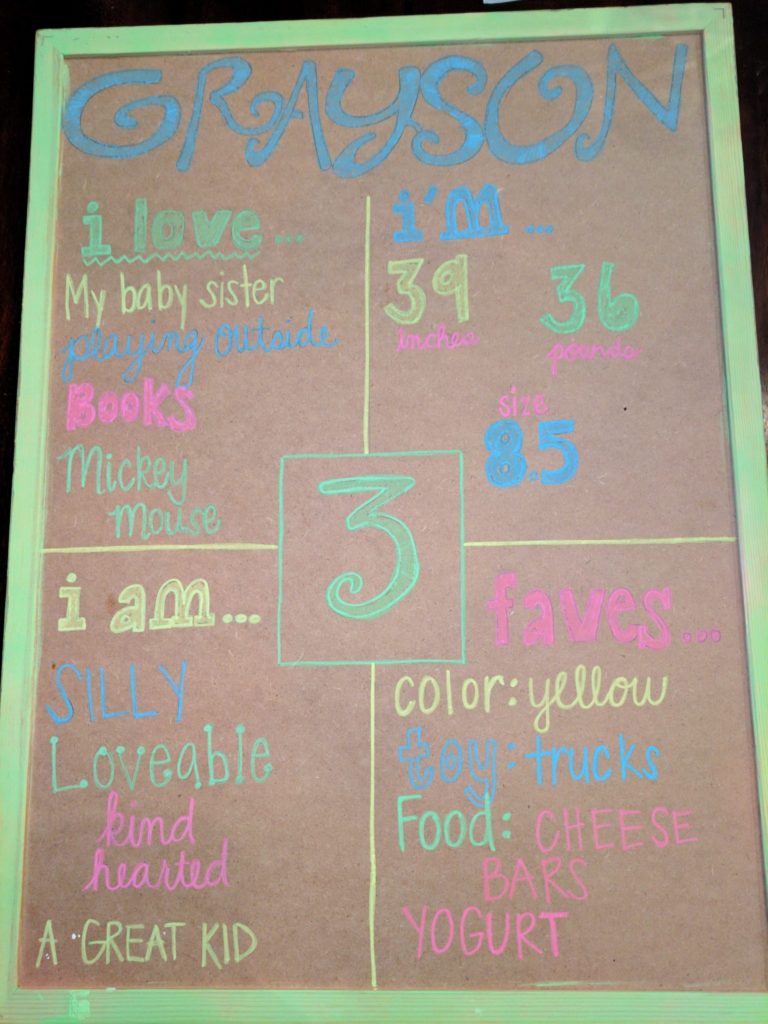 GRAYSON
i love...
My baby sister
playing outside
Books
Mickey
Mouse
i'm...
39
inches
36
pounds
size
8.5
3
i am...
SILLY
Loveable
kind
hearted
A GREAT KID
faves...
color: yellow
toy: trucks
Food: CHEESE
BARS
YOGURT